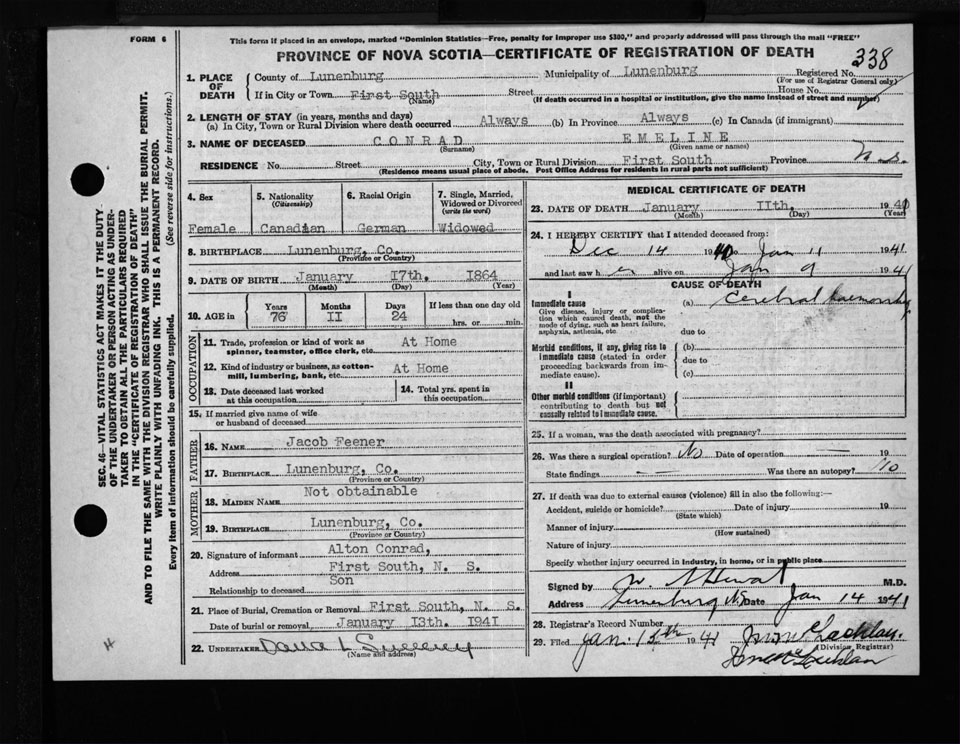 FORM 6
This form if placed in an envelope, marked "Dominion Statistics—Free, penalty for improper use $300," and properly addressed will pass through the mail "FREE"
PROVINCE OF NOVA SCOTIA—CERTIFICATE OF REGISTRATION OF DEATH
338
1. PLACE OF DEATH
County of Lunenburg Municipality of Lunenburg Registered No.
(For use of Registrar General only)
If in City or Town First South Street House No.
(Name) (If death occurred in a hospital or institution, give the name instead of street and number)
2. LENGTH OF STAY (in years, months and days)
(a) In City, Town or Rural Division where death occurred Always (b) In Province Always (c) In Canada (if immigrant)
3. NAME OF DECEASED CONRAD EMELINE
(Surname) (Given name or names)
RESIDENCE No. Street City, Town or Rural Division First South Province N.S.
(Residence means usual place of abode. Post Office Address for residents in rural parts not sufficient)
4. Sex 5. Nationality (Citizenship) 6. Racial Origin 7. Single, Married, Widowed or Divorced (write the word)
Female Canadian German Widowed
8. BIRTHPLACE Lunenburg, Co.
(Province or Country)
9. DATE OF BIRTH January 17th. 1864
(Month) (Day) (Year)
10. AGE in Years Months Days If less than one day old
76 II 24 hrs. or min.
OCCUPATION
11. Trade, profession or kind of work as spinner, teamster, office clerk, etc. At Home
12. Kind of industry or business, as cotton-mill, lumbering, bank, etc. At Home
13. Date deceased last worked at this occupation
14. Total yrs. spent in this occupation
15. If married give name of wife or husband of deceased
FATHER
16. NAME Jacob Feener
17. BIRTHPLACE Lunenburg, Co.
(Province or Country)
MOTHER
18. MAIDEN NAME Not obtainable
19. BIRTHPLACE Lunenburg, Co.
(Province or Country)
20. Signature of informant Alton Conrad,
Address First South, N. S.
Relationship to deceased Son
21. Place of Burial, Cremation or Removal First South, N. S.
Date of burial or removal January I3th. I941
22. UNDERTAKER
(Name and address)
MEDICAL CERTIFICATE OF DEATH
23. DATE OF DEATH January IIth. 1941
(Month) (Day) (Year)
24. I HEREBY CERTIFY that I attended deceased from:
Dec 14 1940 to Jan 11 1941
and last saw her alive on Jan 9 1941
CAUSE OF DEATH
I
Immediate cause (a) Cerebral haemorrhage
Give disease, injury or complication which caused death, not the mode of dying, such as heart failure, asphyxia, asthenia, etc
due to
Morbid conditions, if any, giving rise to immediate cause (stated in order proceeding backwards from immediate cause).
(b)
due to
(c)
II
Other morbid conditions (if important) contributing to death but not causally related to immediate cause.
25. If a woman, was the death associated with pregnancy?
26. Was there a surgical operation? No Date of operation — 19
State findings — Was there an autopsy? No
27. If death was due to external causes (violence) fill in also the following:—
Accident, suicide or homicide? Date of injury 19
(State which)
Manner of injury
(How sustained)
Nature of injury
Specify whether injury occurred in industry, in home, or in public place
Signed by M.D.
Address Lunenburg NS Date Jan 14 1941
28. Registrar's Record Number
29. Filed Jan. 15th 1941
(Division Registrar)
SEC. 46—VITAL STATISTICS ACT MAKES IT THE DUTY OF THE UNDERTAKER OR PERSON ACTING AS UNDERTAKER TO OBTAIN ALL THE PARTICULARS REQUIRED IN THE "CERTIFICATE OF REGISTRATION OF DEATH"
AND TO FILE THE SAME WITH THE DIVISION REGISTRAR WHO SHALL ISSUE THE BURIAL PERMIT.
WRITE PLAINLY WITH UNFADING INK. THIS IS A PERMANENT RECORD.
Every item of information should be carefully supplied. (See reverse side for instructions.)